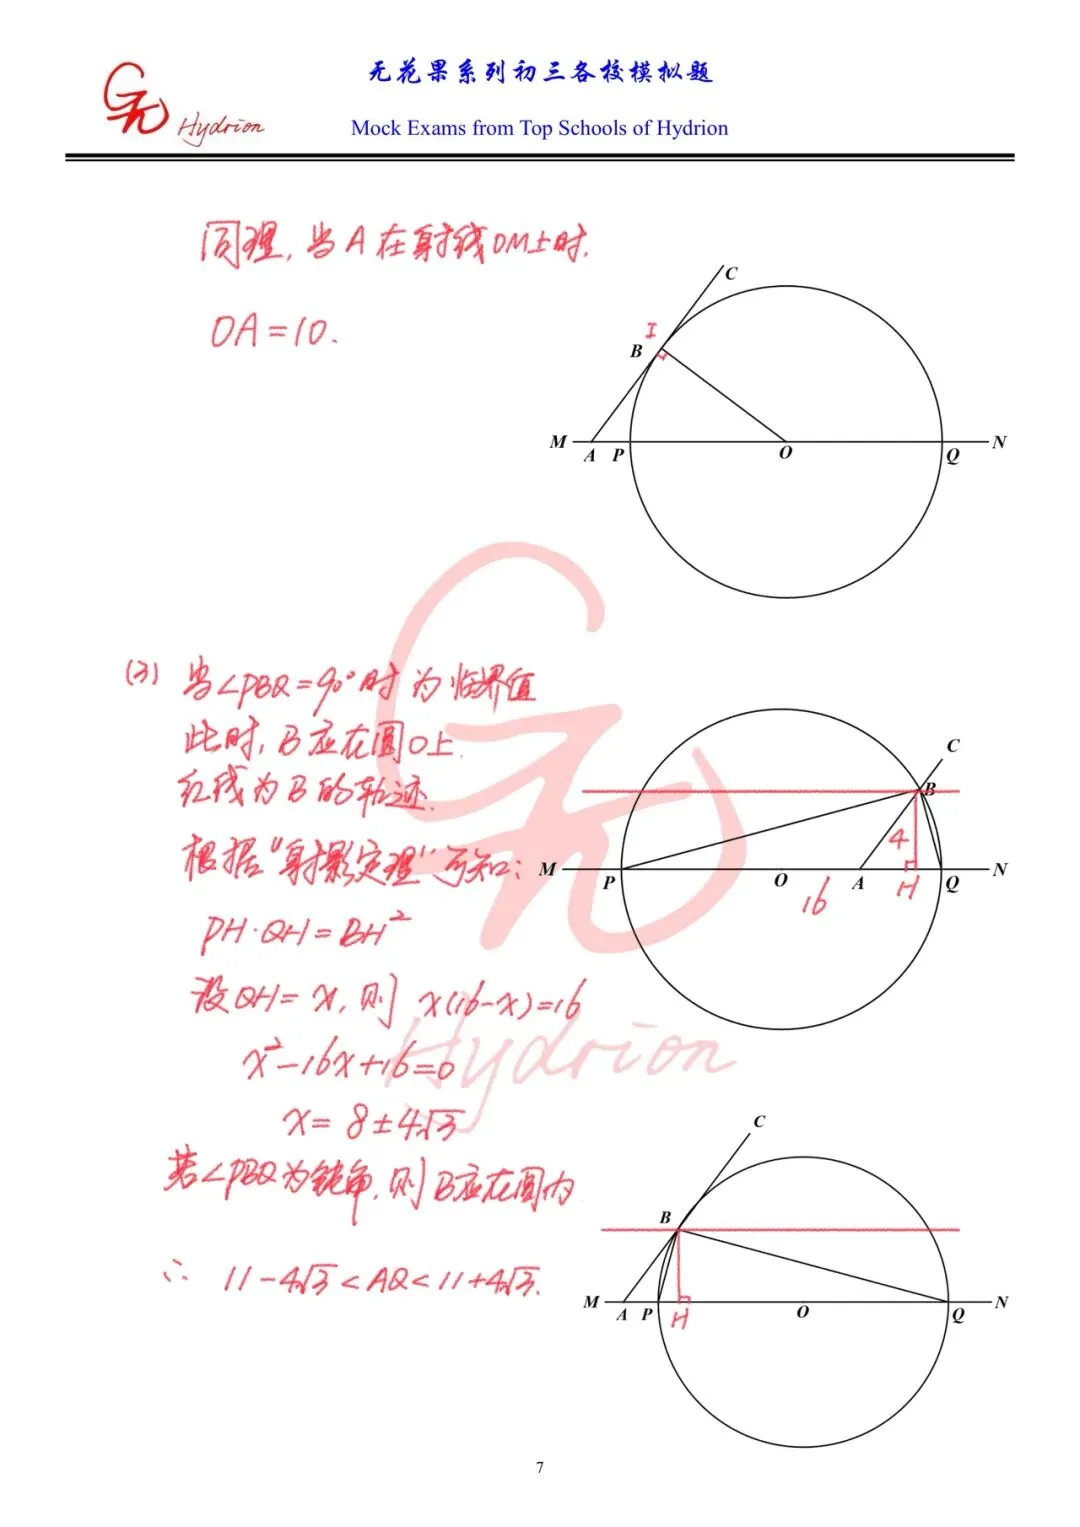 无花果系列初三各校模拟题
Hydrion
Mock Exams from Top Schools of Hydrion
同理,当A在射线OM上时.
OA=10.
C
I
B
M
A
P
O
Q
N
(3) 当∠PBQ=90°时为临界值
此时,B应在圆O上.
红线为B的轨迹.
根据"射影定理"可知:
PH·QH=BH²
设QH=x,则 x(16-x)=16
x²-16x+16=0
x=8±4√3
若∠PBQ为钝角,则B应在圆内
∴ 11-4√3<AQ<11+4√3.
C
B
4
M
P
O
A
H
Q
N
16
Hydrion
C
B
M
A
P
H
O
Q
N
7